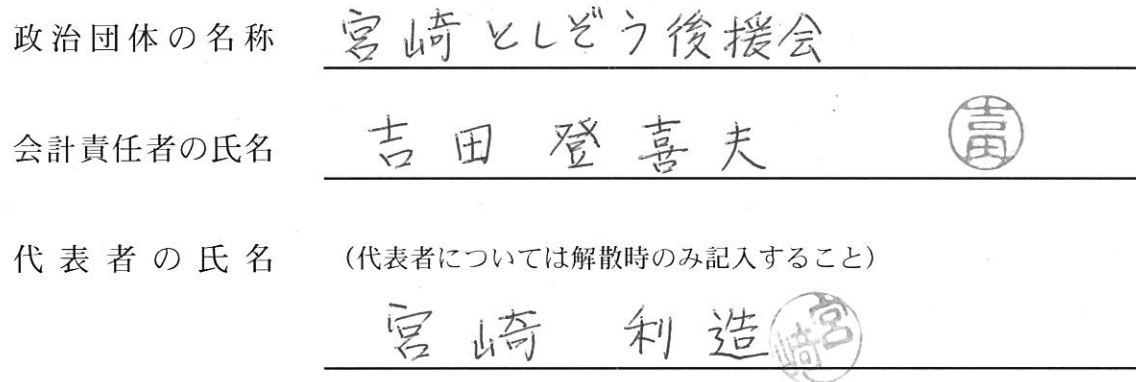 政治団体の名称 宮崎としぞう後援会
会計責任者の氏名 吉田登喜夫 吉田
代表者の氏名 (代表者については解散時のみ記入すること)
宮崎 利造 宮崎